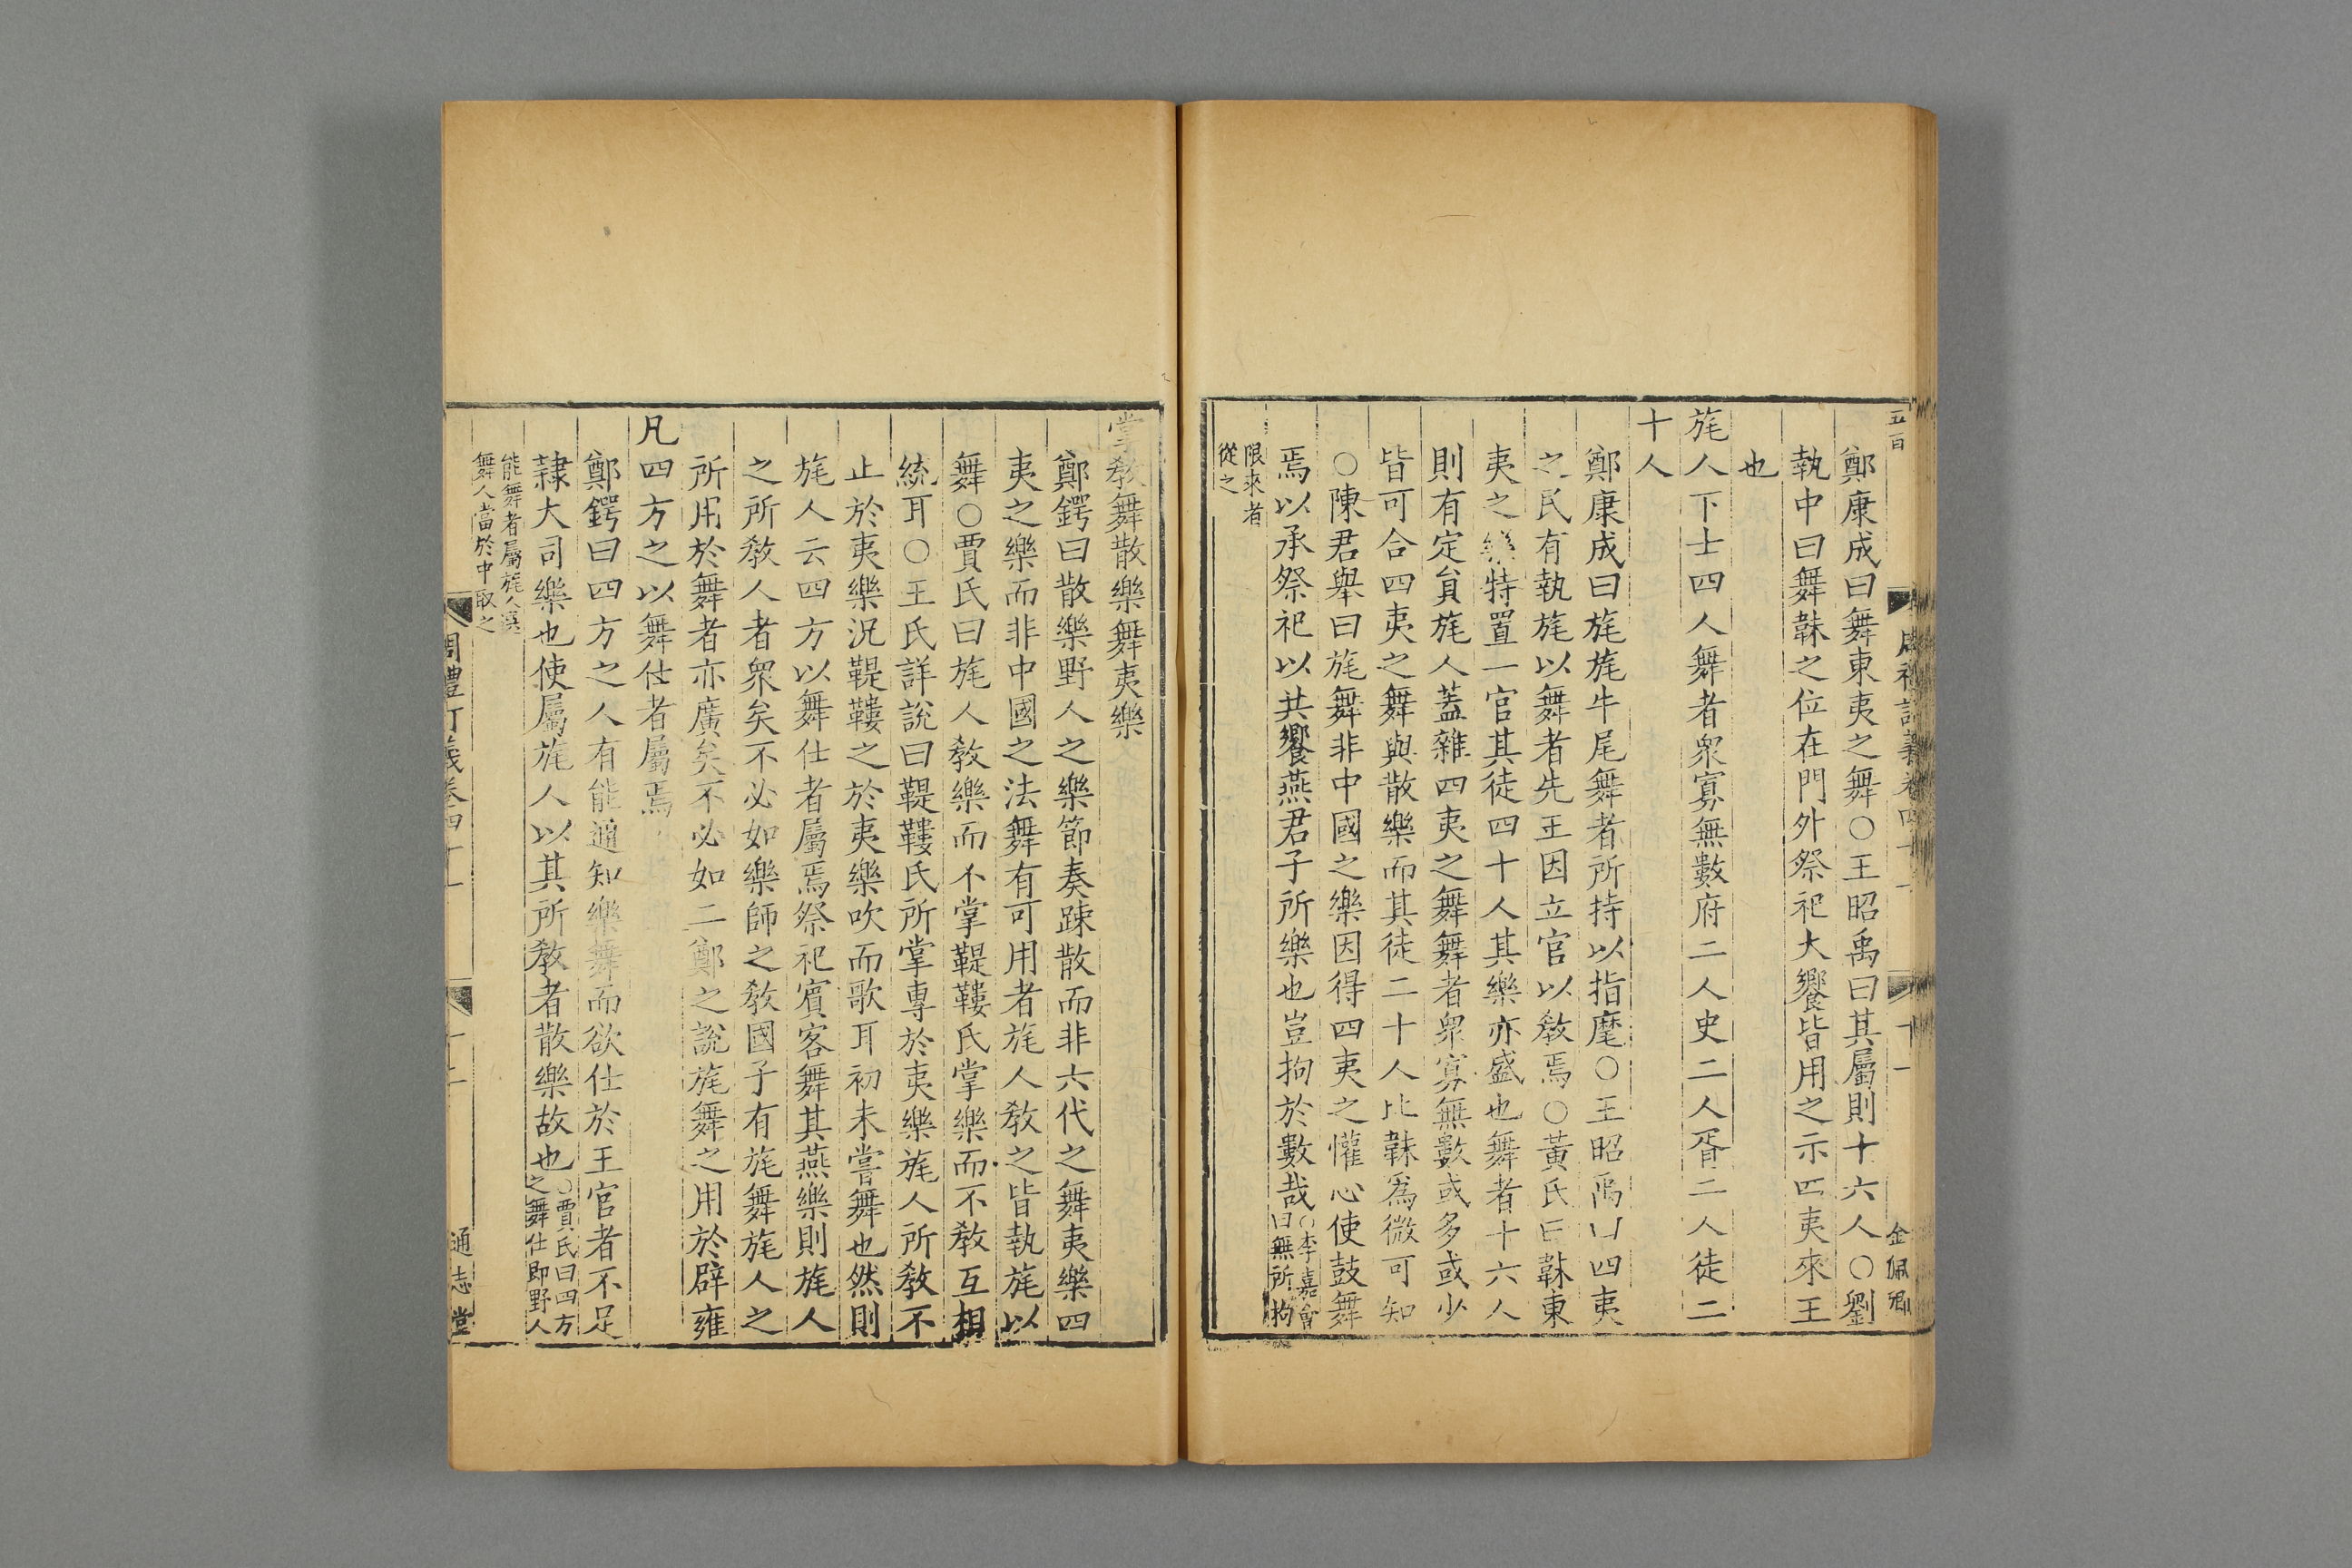 五百
鄭康成曰舞東夷之舞○王昭禹曰其屬則十六人○劉
執中曰舞韎之位在門外祭祀大饗皆用之示四夷來王
也
旄人下士四人舞者眾寡無數府二人史二人胥二人徒二
十人
鄭康成曰旄旄牛尾舞者所持以指麾○王昭禹曰四夷
之民有執旄以舞者先王因立官以敎焉○黃氏曰韎東
夷之樂特置一官其徒四十人其樂亦盛也舞者十六人
則有定員旄人蓋雜四夷之舞舞者眾寡無數或多或少
皆可合四夷之舞與散樂而其徒二十人比韎爲微可知
○陳君舉曰旄舞非中國之樂因得四夷之懽心使鼓舞
焉以承祭祀以共饗燕君子所樂也豈拘於數哉○李嘉會
曰無所拘
限來者
從之
周禮訂義卷四十一
十一
金佩卿
掌敎舞散樂舞夷樂
鄭鍔曰散樂野人之樂節奏踈散而非六代之舞夷樂四
夷之樂而非中國之法舞有可用者旄人敎之皆執旄以
舞○賈氏曰旄人敎樂而不掌鞮鞻氏掌樂而不敎互相
統耳○王氏詳說曰鞮鞻氏所掌專於夷樂旄人所敎不
止於夷樂況鞮鞻之於夷樂吹而歌耳初未嘗舞也然則
旄人云四方以舞仕者屬焉祭祀賓客舞其燕樂則旄人
之所敎人者眾矣不必如樂師之敎國子有旄舞旄人之
所用於舞者亦廣矣不必如二鄭之說旄舞之用於辟雍
凡四方之以舞仕者屬焉
鄭鍔曰四方之人有能通知樂舞而欲仕於王官者不足
隸大司樂也使屬旄人以其所敎者散樂故也○賈氏曰四方
之舞仕即野人
能舞者屬旄人選
舞人當於中取之
周禮訂義卷四十一
通志堂